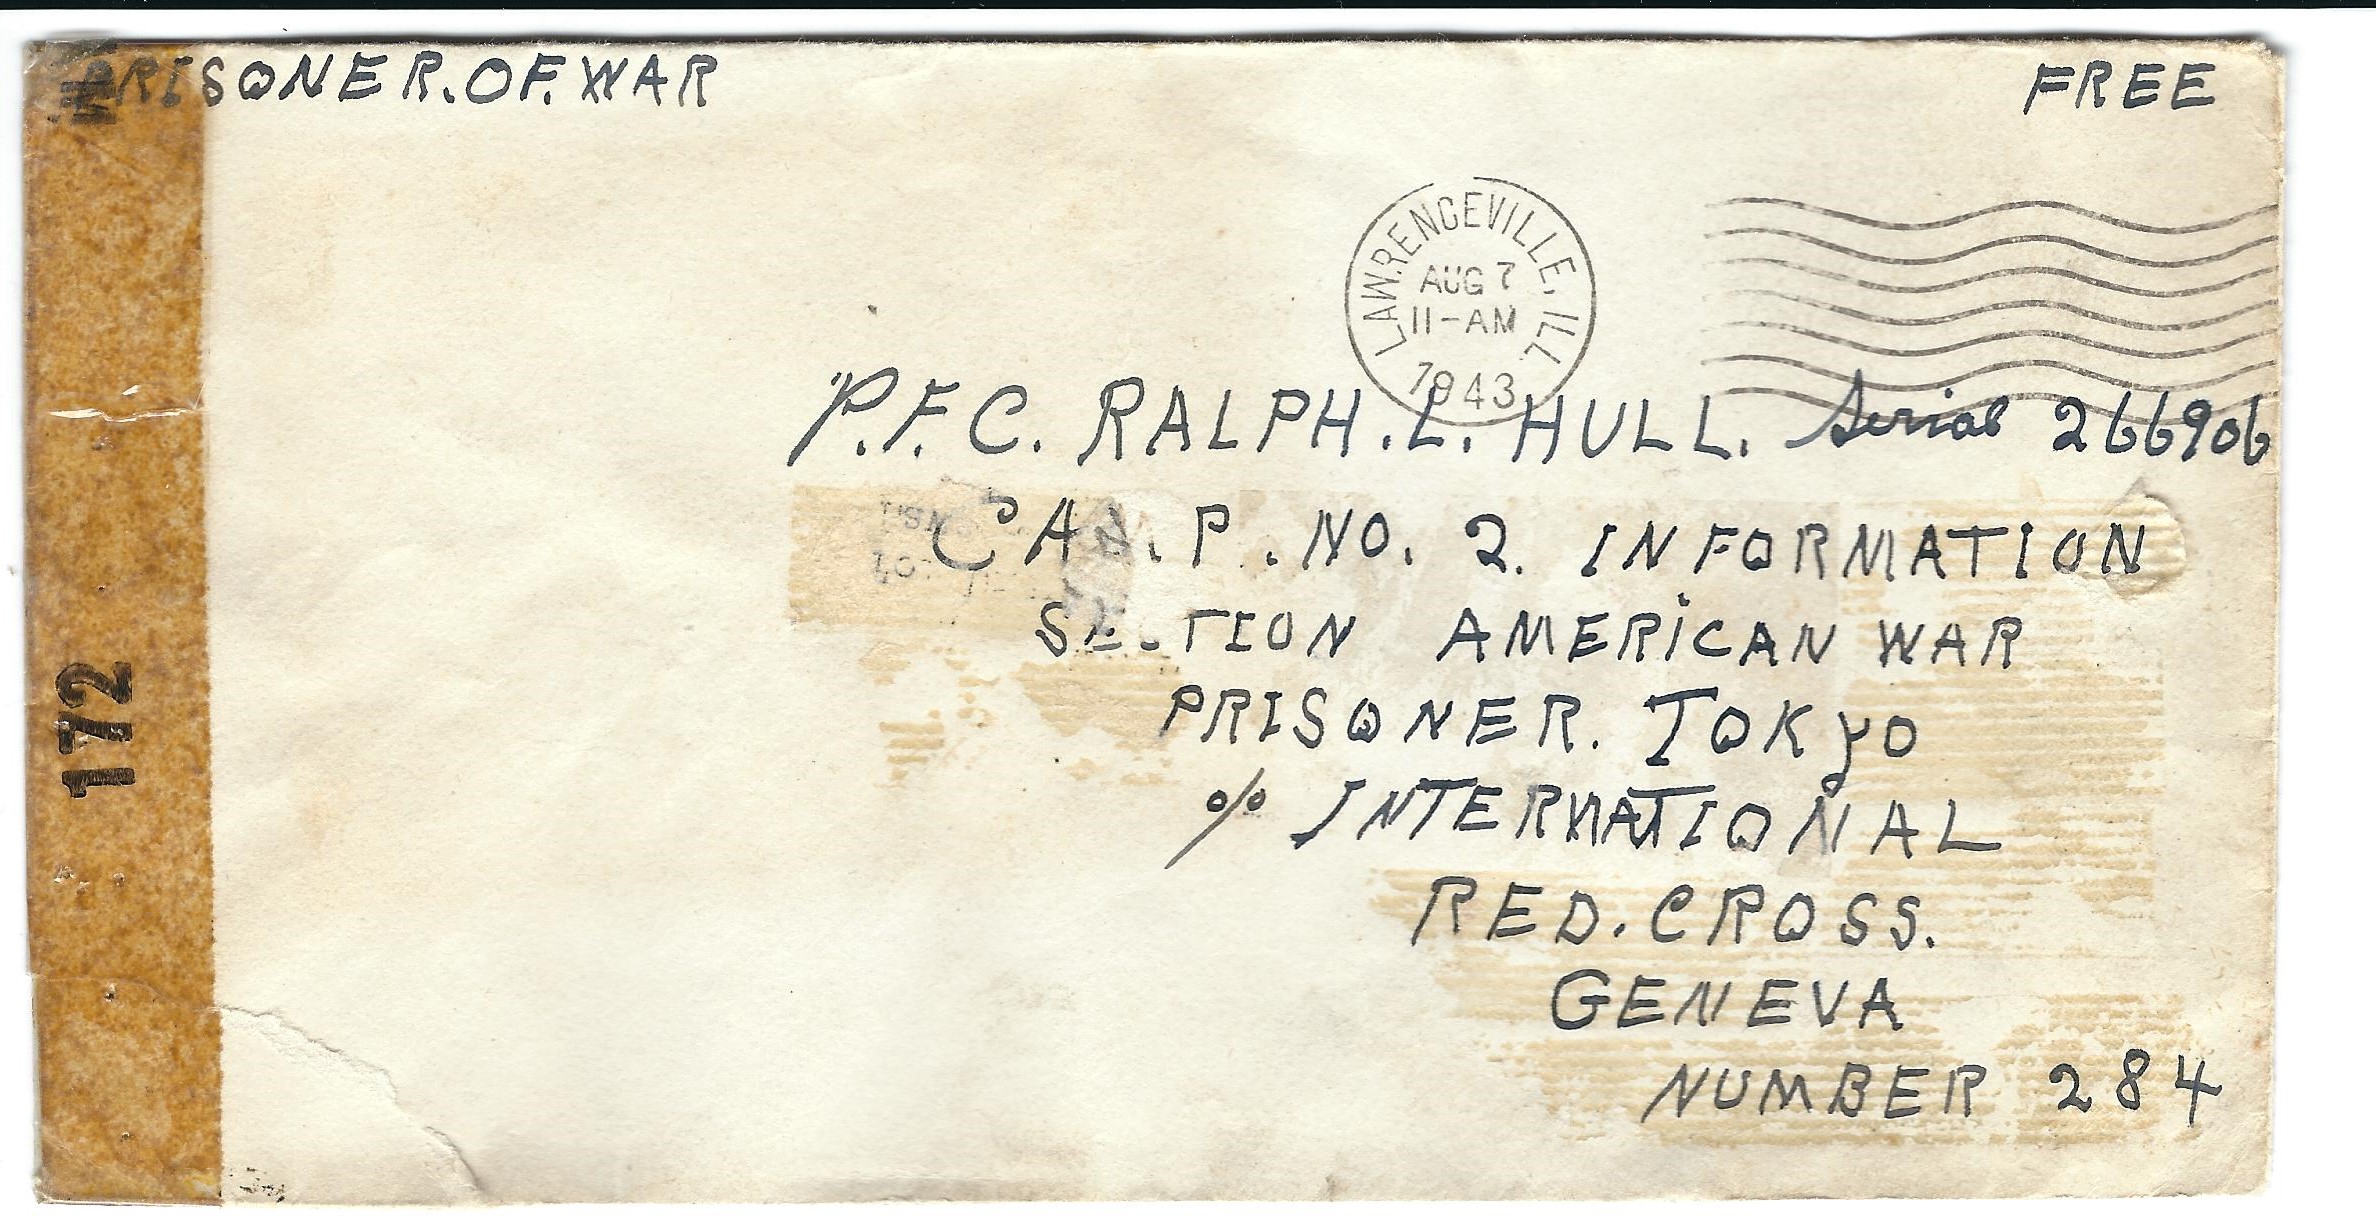 PRISONER.OF.WAR
FREE
LAWRENCEVILLE, ILL
AUG 7
11-AM
1943
P.F.C. RALPH.L. HULL. Serial 266906
CAM.P.NO. 2. INFORMATION
SECTION AMERICAN WAR
PRISONER. TOKYO
% INTERNATIONAL
RED.CROSS.
GENEVA
NUMBER 284
172